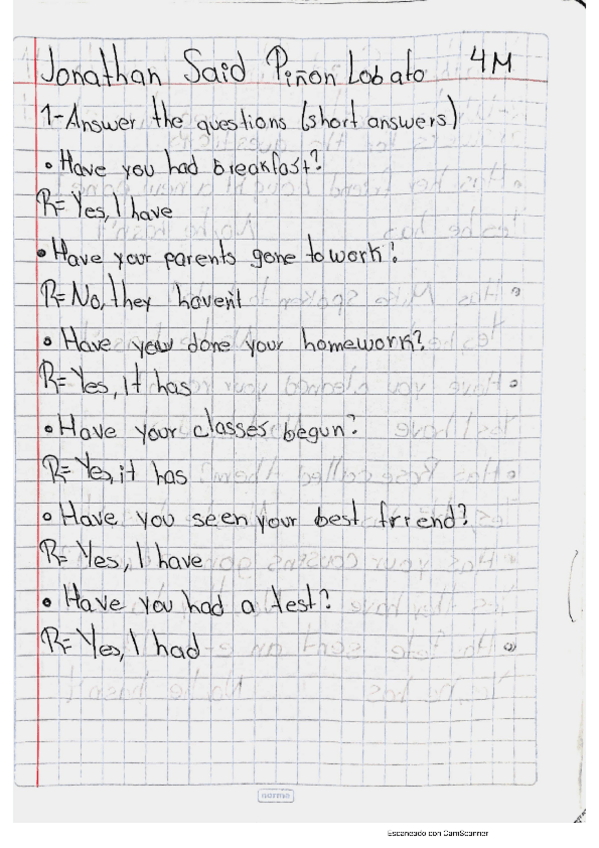 Jonathan Said Piñon Lobato 4M
1-Answer the questions (short answers)
• Have you had breakfast?
R= Yes, I have
• Have your parents gone to work?
R= No, they haven't
• Have you done your homework?
R= Yes, It has
• Have your classes begun?
R= Yes, it has
• Have you seen your best friend?
R= Yes, I have
• Have you had a test?
R= Yes, I had
norma
Escaneado con CamScanner